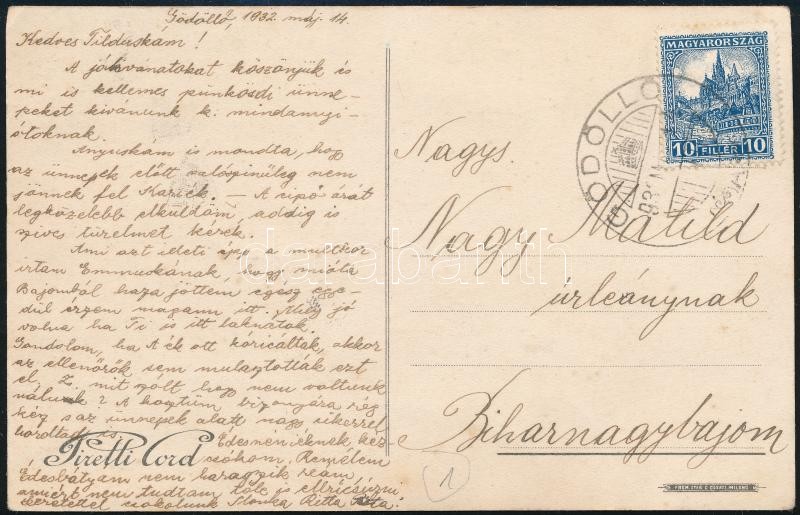 Gödöllő, 1932. máj. 14.
Kedves Tilduskám!
A jókivánatokat köszönjük és
mi is kellemes pünkösdi ünne-
peket kivánunk k. mindannyi-
ótoknak.
Anyuskám is mondta, hogy
az ünnepek előtt valószinüleg nem
jönnek fel Kariék. - A cipő árát
legközelebb elküldöm, addig is
szives türelmet kérek.
Ami azt illeti épp a multkor
irtam Emmuskának, hogy mióta
Bajomból haza jöttem egész egye-
dül érzem magam itt. Még jó
volna ha Ti is itt laknátok.
Gondolom, ha A ék ott kóricáltak, akkor
az ellenőrök sem mulasztották ezt
el. Z. mit szólt hogy nem voltunk
nálunk? A kosztüm bizonyára rég
kész s az ünnepek alatt nagy sikerrel
hordtad is
Édesnéniéknek kéz
csókom. Remélem
Édesbátyám nem haragszik reám,
amiért nem tudtam tőle is
szeretettel csókolunk Ilonka Retta
Piretti Cord
MAGYARORSZÁG
10 FILLÉR 10
GÖDÖLLŐ
Nagys.
Nagy Matild
úrleánynak
Biharnagybajom
1
darabanth